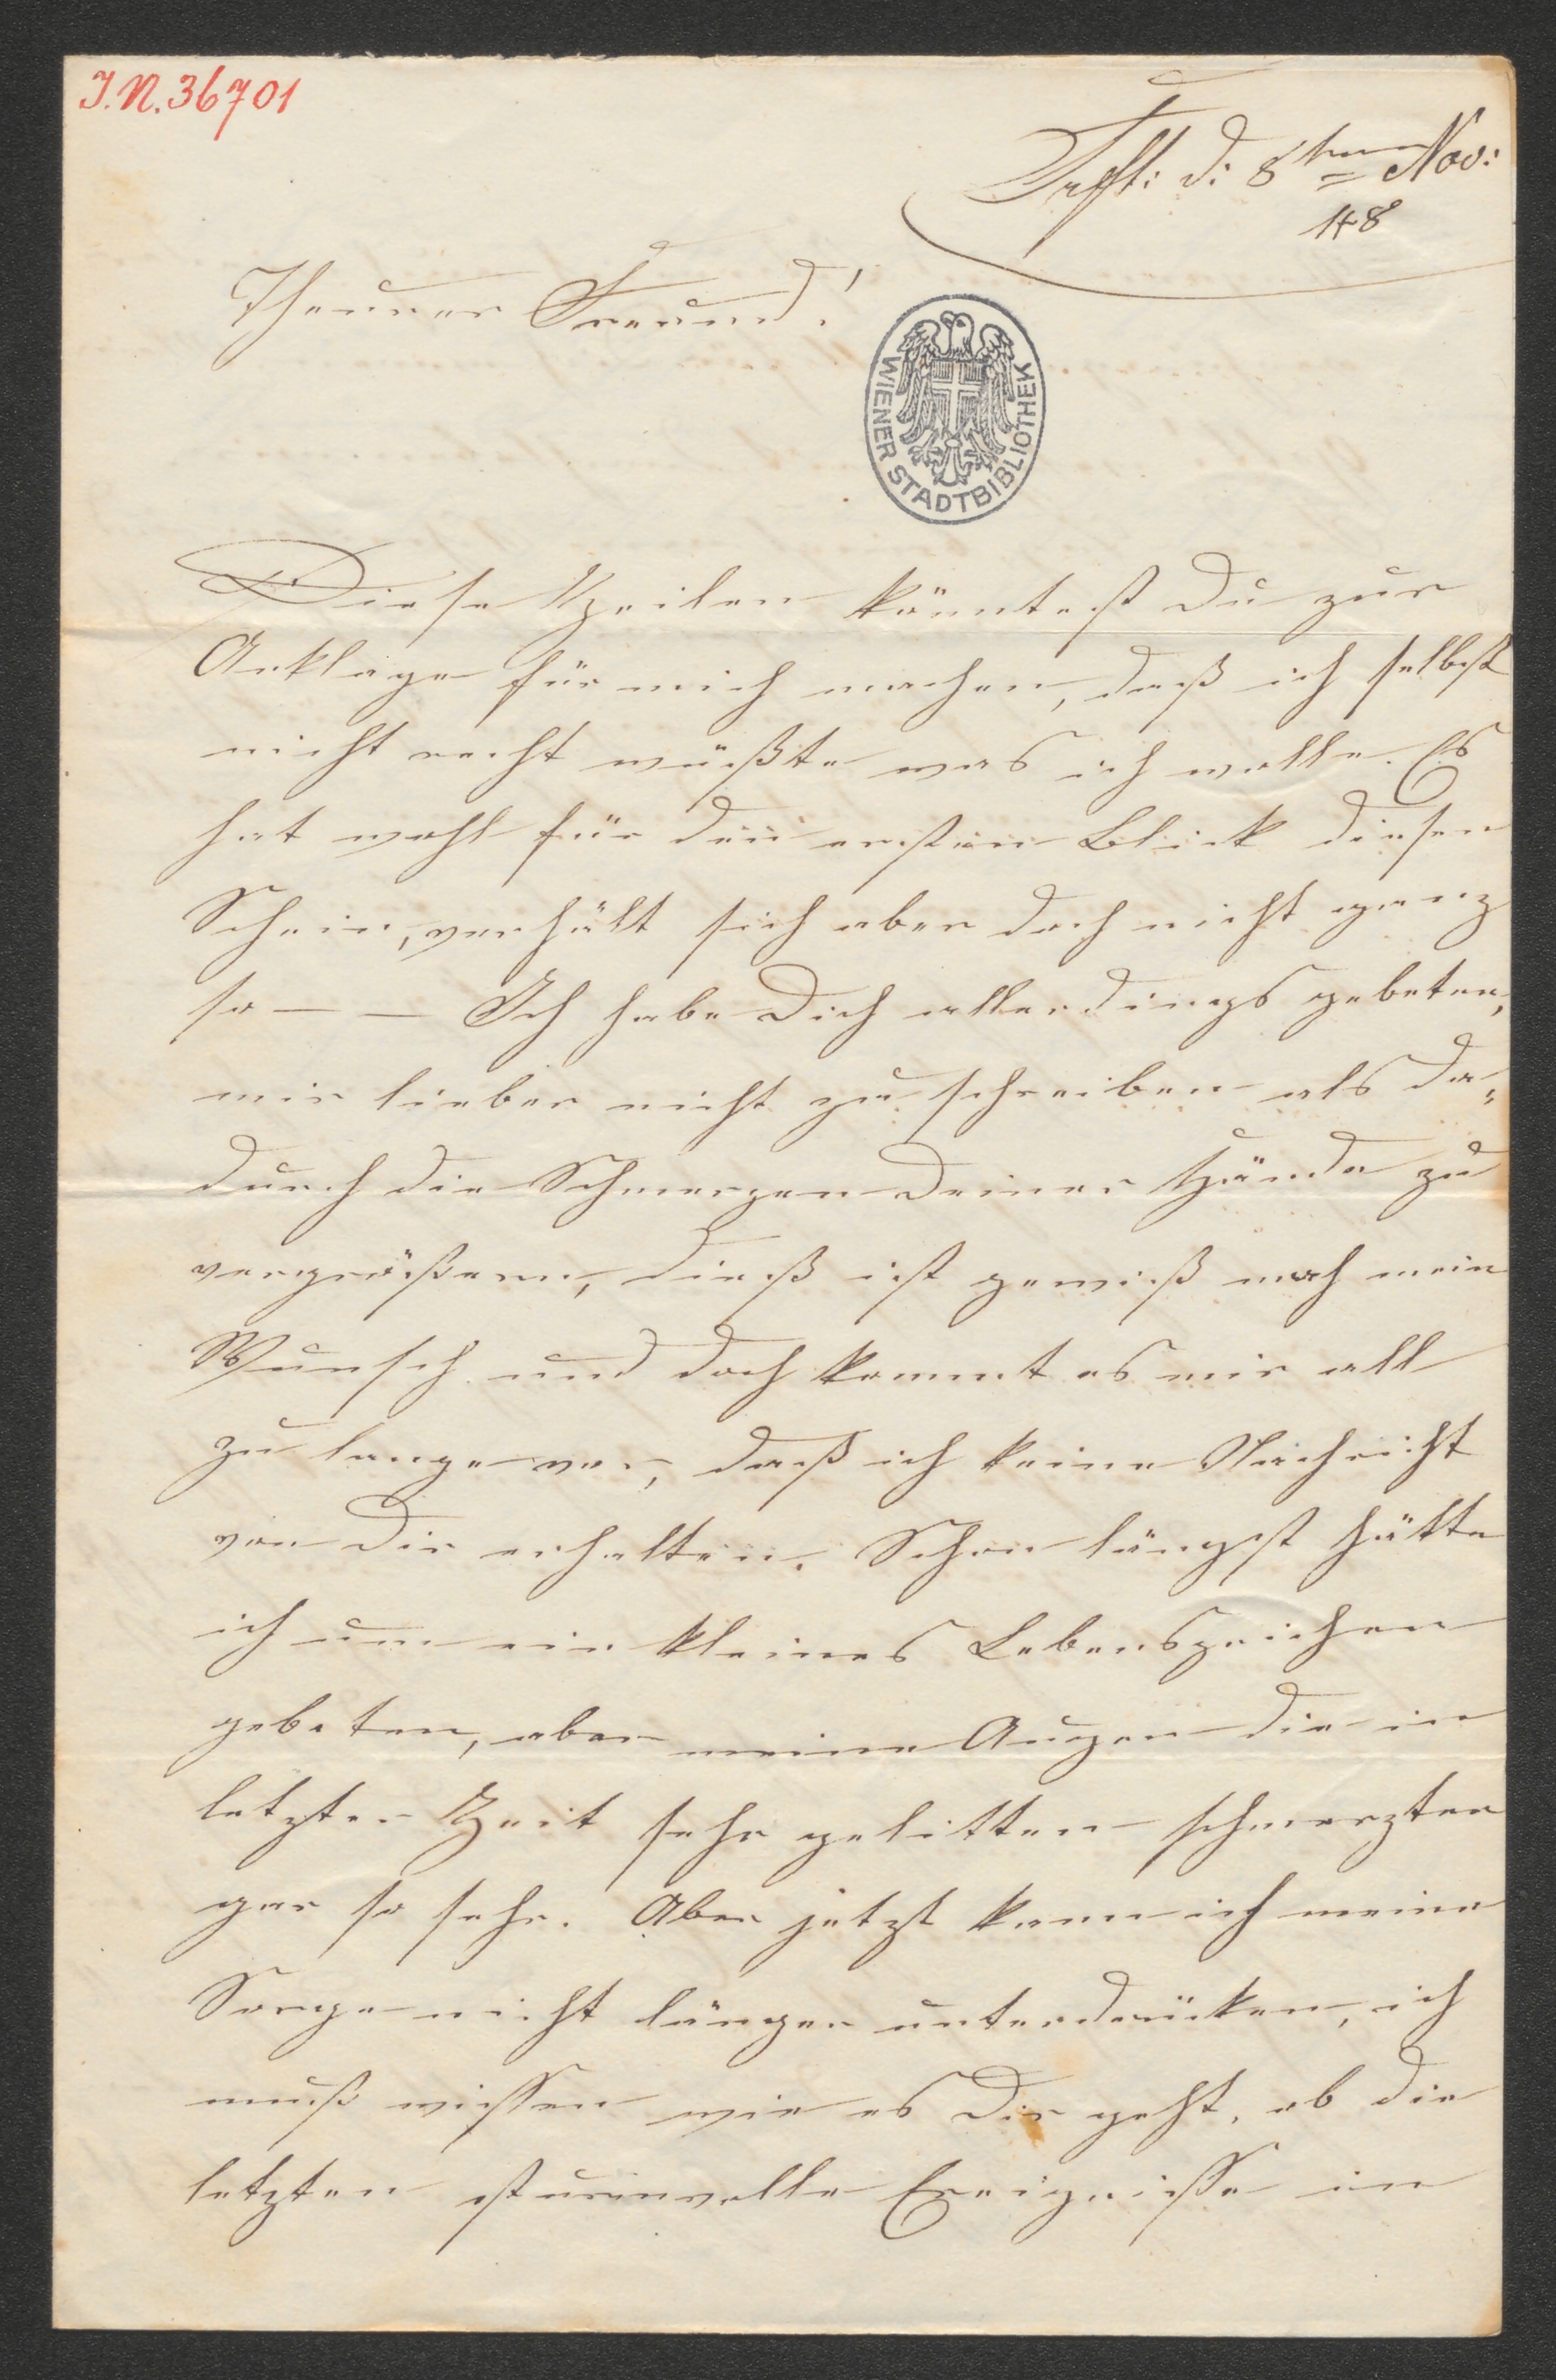 J.N. 36701
Frft: d: 8ten Nov:
148
Theurer Freund!
WIENER STADTBIBLIOTHEK
Diese Zeilen könntest Du zur
Anklage für mich machen, daß ich selbst
nicht recht wüßte was ich wolle. Es
hat wohl für den ersten Blick diesen
Schein, verhält sich aber doch nicht ganz
so — — Ich habe Dich allerdings gebeten,
mir lieber nicht zu schreiben als da„
durch die Schmerzen Deiner Hände zu
vergrößern, dieß ist gewiß noch mein
Wunsch und doch kommt es mir all
zu lange vor, daß ich keine Nachricht
von Dir erhalten. Schon längst hätte
ich um ein kleines Lebenszeichen
gebeten, aber meine Augen die in
letzter Zeit sehr gelitten schmerzten
gar so sehr. Aber jetzt kann ich meine
Sorge nicht länger unterdrücken, ich
muß wissen wie es Dir geht, ob die
letzten sturmvolle Ereignisse in